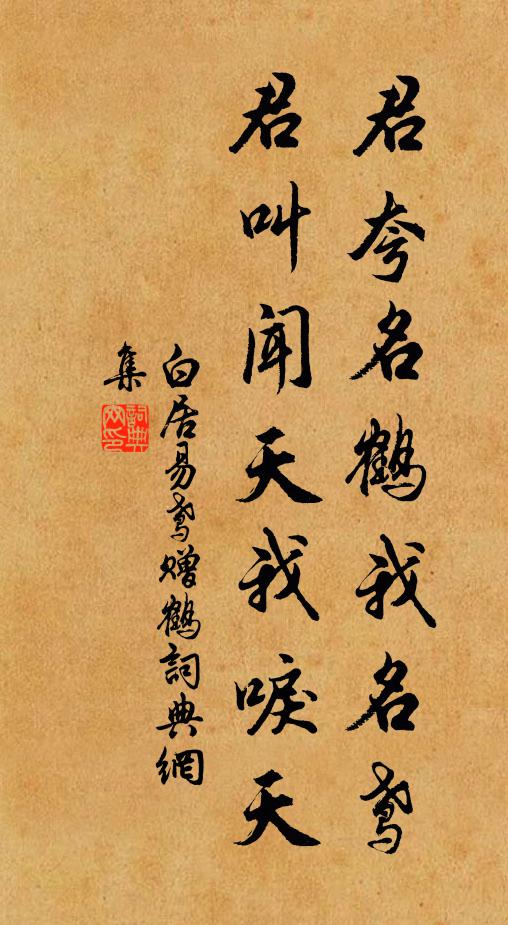 君夸名鶴我名鸢
君叫闻天我唳天
白居易鸢赠鶴詞典網
集
詞典